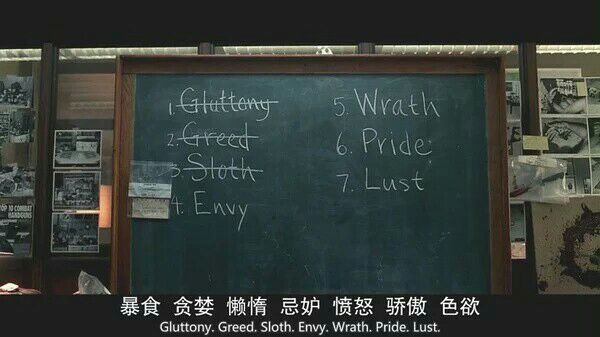 1. Gluttony
2. Greed
3. Sloth
4. Envy
5. Wrath
6. Pride
7. Lust
TOP 10 COMBAT
HANDGUNS
暴食 贪婪 懒惰 忌妒 愤怒 骄傲 色欲
Gluttony. Greed. Sloth. Envy. Wrath. Pride. Lust.